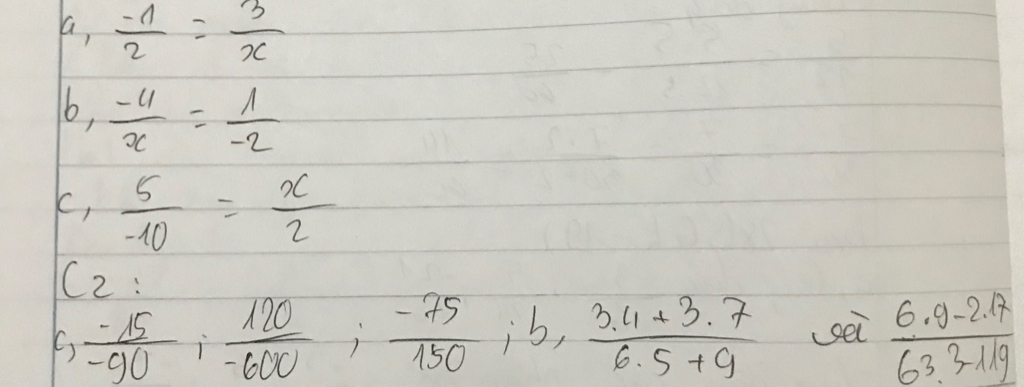 a, -1/2 = 3/x
b, -4/x = 1/-2
c, 5/-10 = x/2
C2:
c, -15/-90 ; 120/-600 ; -75/150 ; b, 3.4+3.7/6.5+9 và 6.9-2.17/63.3-119